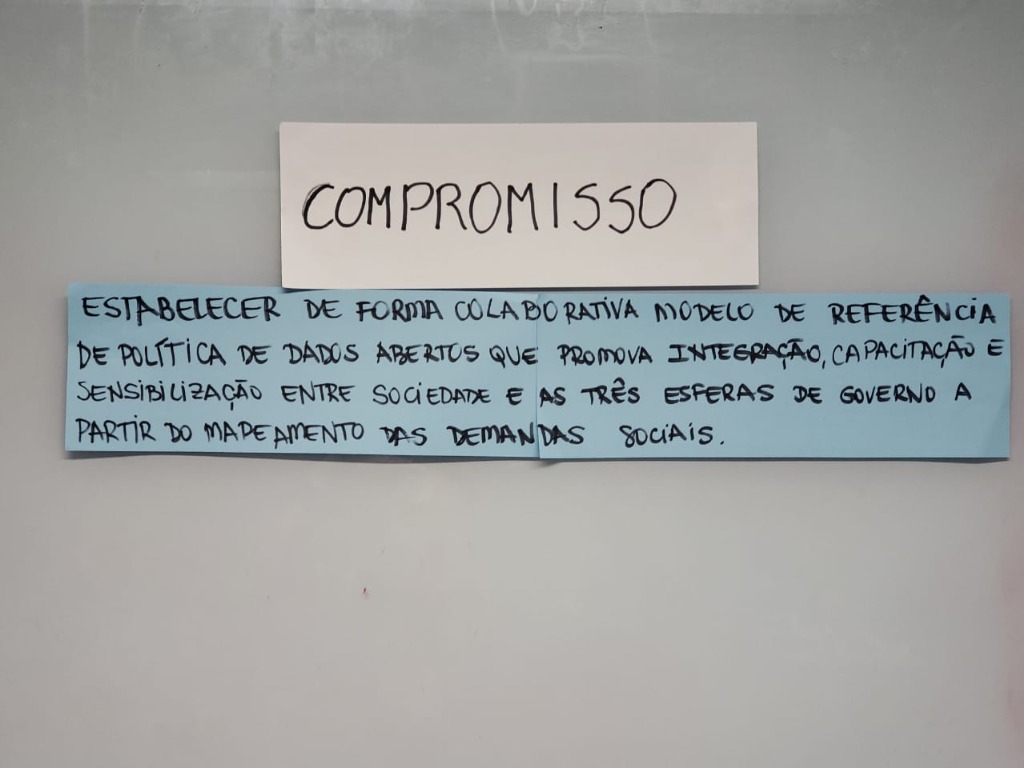 COMPROMISSO
ESTABELECER DE FORMA COLABORATIVA MODELO DE REFERÊNCIA
DE POLÍTICA DE DADOS ABERTOS QUE PROMOVA INTEGRAÇÃO, CAPACITAÇÃO E
SENSIBILIZAÇÃO ENTRE SOCIEDADE E AS TRÊS ESFERAS DE GOVERNO A
PARTIR DO MAPEAMENTO DAS DEMANDAS SOCIAIS.